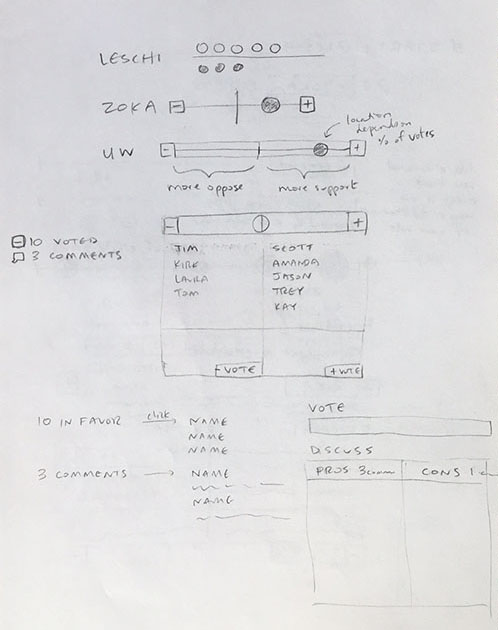 LESCHI
ZOKA
location
dependent on
% of votes
UW
more oppose
more support
10 VOTED
3 COMMENTS
JIM
KIRK
LAURA
TOM
SCOTT
AMANDA
JASON
TREY
KAY
- VOTE
+ VOTE
10 IN FAVOR
click
NAME
NAME
NAME
3 COMMENTS
NAME
NAME
VOTE
DISCUSS
PROS 3 comm
CONS 1